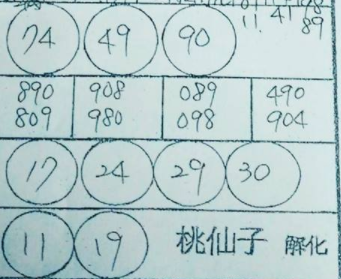 11. 41 89
74 49 90
890 908 089 490
809 980 098 904
17 24 29 30
11 19 桃仙子 解化